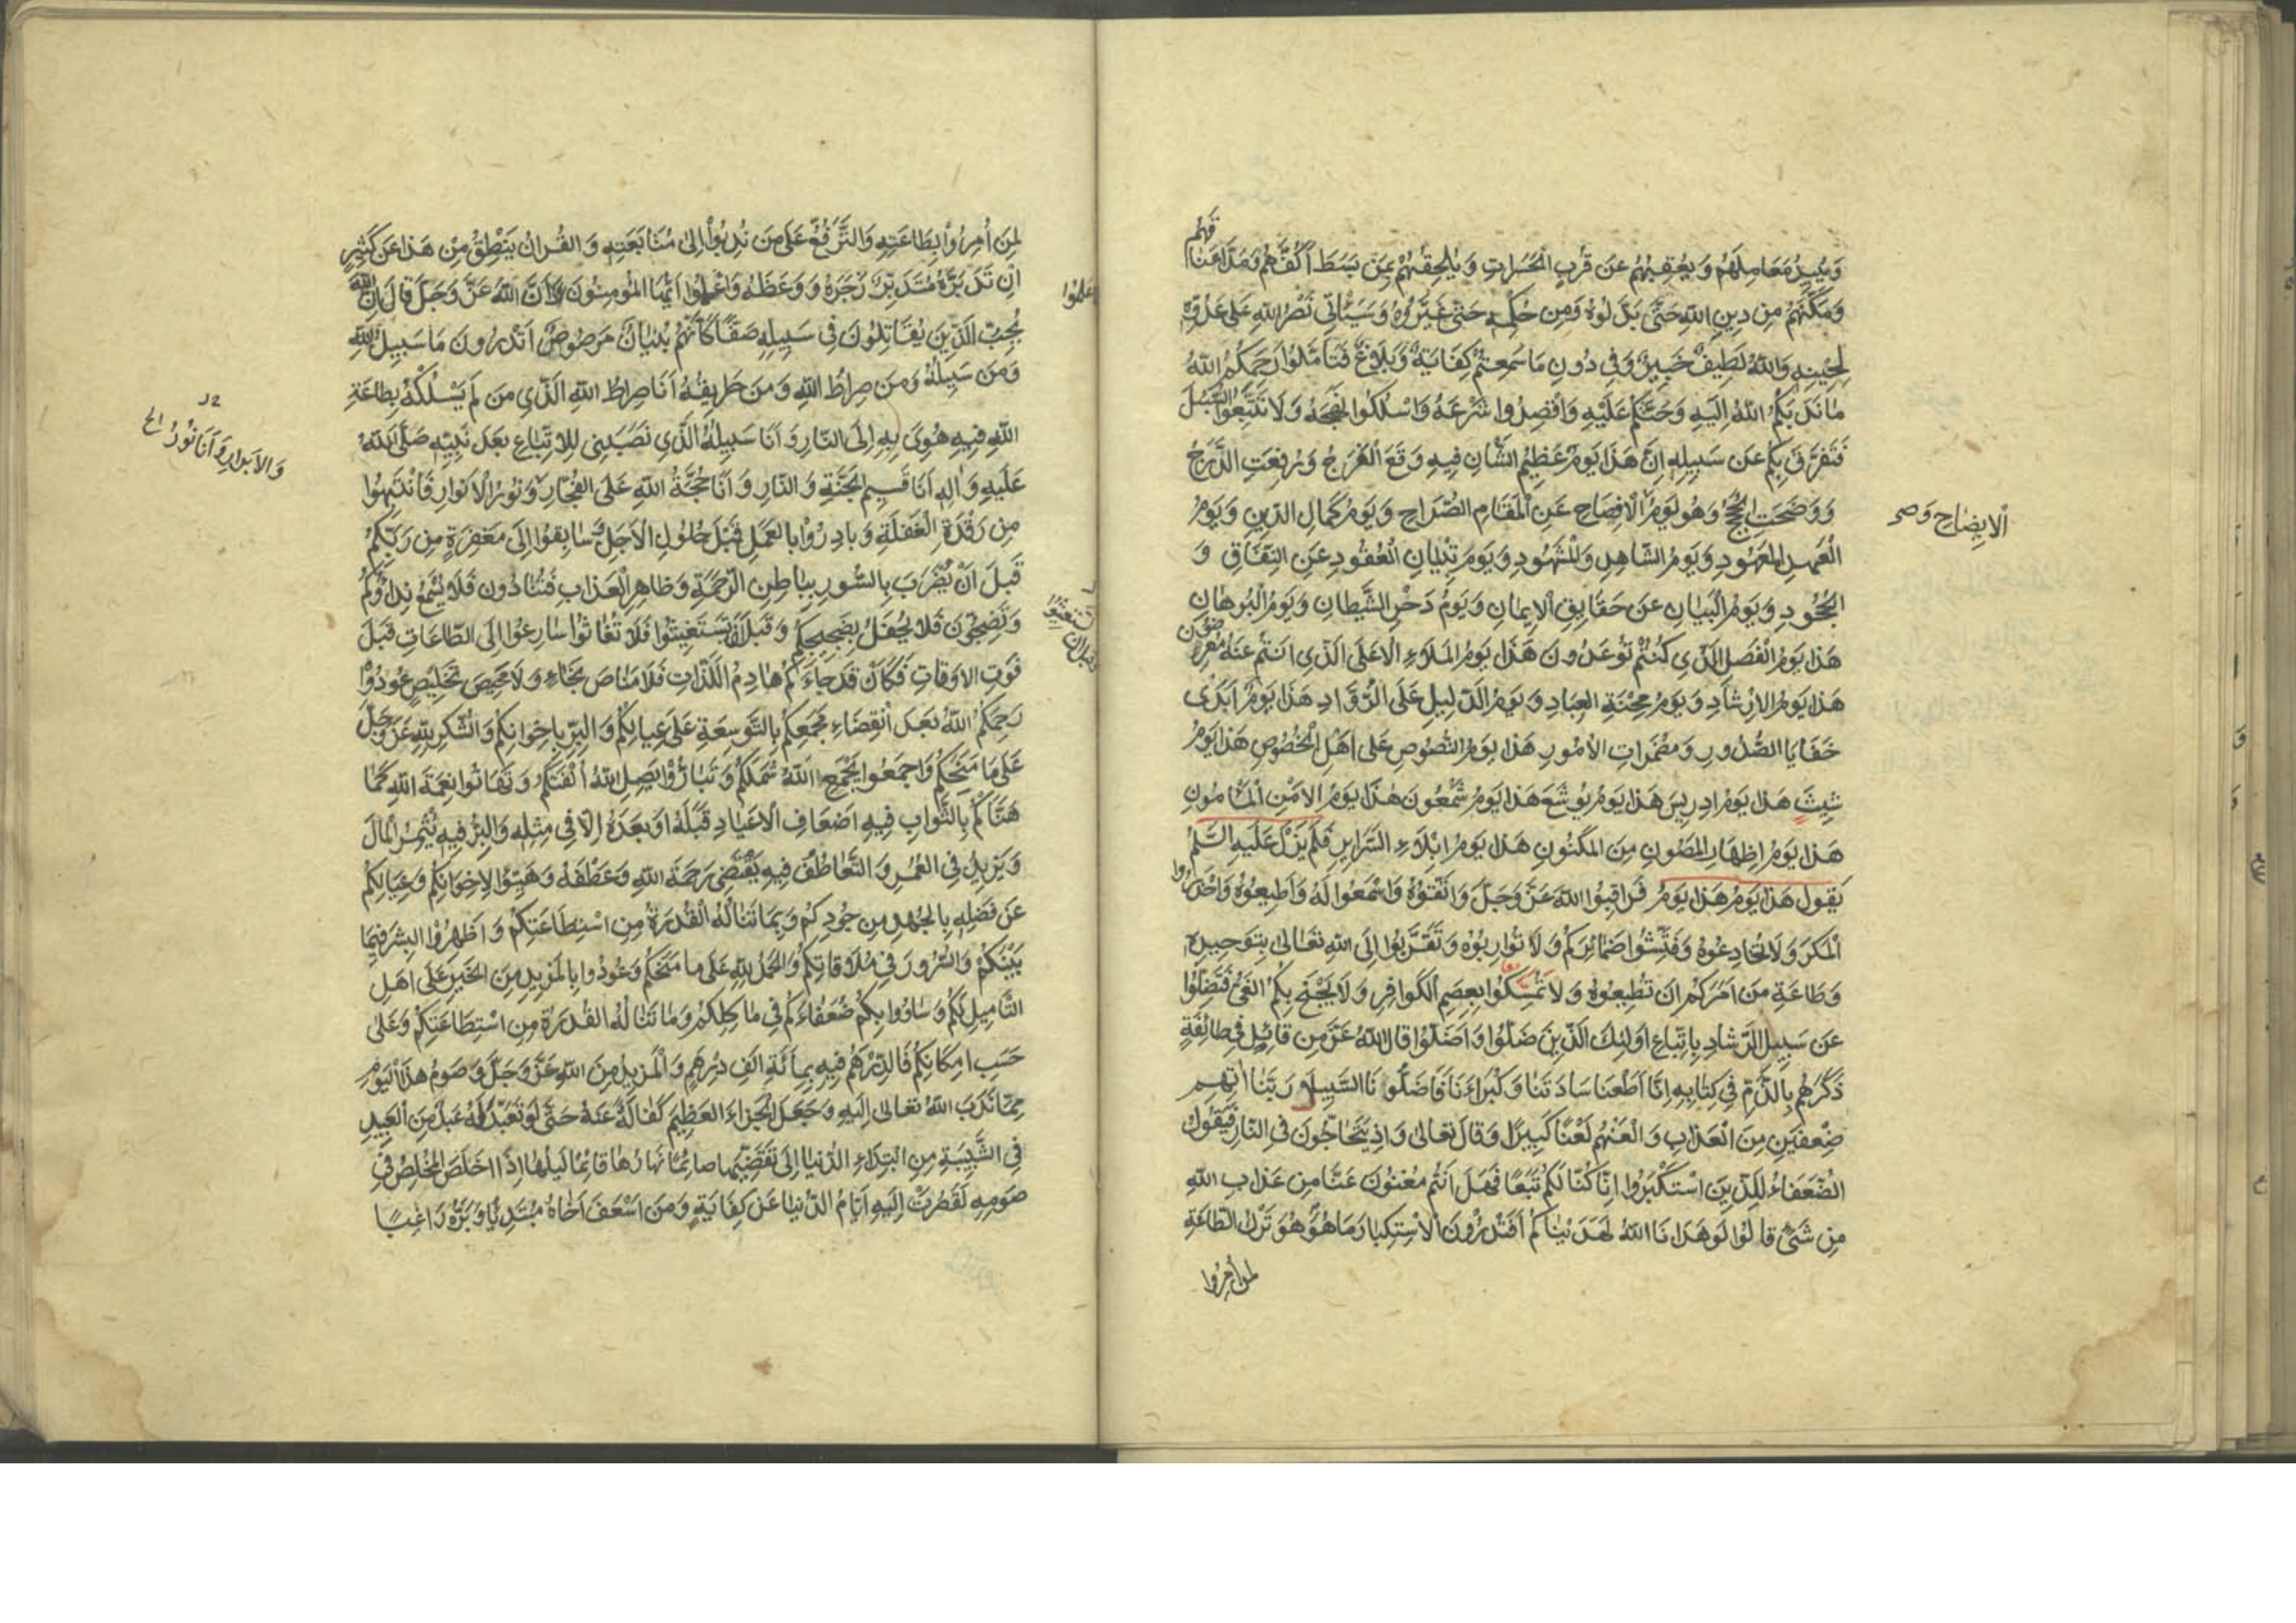 فهم
وَيُبِيدُ مَعَامِلَهُمْ وَيُعْقِبُهُمْ عَن قُرْبِ الْحَسَرَاتِ وَيُلْحِقُهُمْ بِمَن بَسَطَ اَكُفَّهُمْ وَمَدَّ اَعْنَا
وَمَكَّنَهُمْ مِن دِينِ اللهِ حَتّٰى بَدَّلُوهُ وَمِن حُكْمِهِ حَتّٰى غَيَّرُوهُ وَسَيَأْتِي نَصْرُ اللهِ عَلَى عَدُوِّهِ
لِحِينِهِ وَاللهُ لَطِيفٌ خَبِيرٌ وَفِي دُونِ مَا سَمِعْتُمْ كِفَايَةٌ وَبَلَاغٌ فَتَأَمَّلُوا رَحِمَكُمُ اللهُ
مَا نَدَبَكُمُ اللهُ اِلَيْهِ وَحَثَّكُمْ عَلَيْهِ وَاقْصِدُوا شَرْعَهُ وَاسْلُكُوا نَهْجَهُ وَلَا تَتَّبِعُوا السُّبُلَ
فَتَفَرَّقَ بِكُمْ عَن سَبِيلِهِ اِنَّ هَذَا يَوْمٌ عَظِيمُ الشَّانِ فِيهِ وَقَعَ الْفَرَجُ وَرُفِعَتِ الدَّرَجُ
وَوَضَحَتِ الْحُجَجُ وَهُوَ يَوْمُ الْاِفْصَاحِ عَنِ الْمَقَامِ الصُّرَاحِ وَيَوْمُ كَمَالِ الدِّينِ وَيَوْمُ
الايضاح وَ
الْعَهْدِ الْمَعْهُودِ وَيَوْمُ الشَّاهِدِ وَالْمَشْهُودِ وَيَوْمُ تِبْيَانِ الْعُقُودِ عَنِ النِّفَاقِ وَ
الْجُحُودِ وَيَوْمُ الْبَيَانِ عَن حَقَايِقِ الْاِيمَانِ وَيَوْمُ دَحْرِ الشَّيْطَانِ وَيَوْمُ الْبُرْهَانِ
هَذَا يَوْمُ الْفَصْلِ الَّذِي كُنْتُمْ تُوعَدُونَ هَذَا يَوْمُ الْمَلَاءِ الْاَعْلَى الَّذِي اَنْتُمْ عَنْهُ مُعْرِضُونَ
هَذَا يَوْمُ الْاِرْشَادِ وَيَوْمُ مِحْنَةِ الْعِبَادِ وَيَوْمُ الدَّلِيلِ عَلَى الرُّوَّادِ هَذَا يَوْمُ اَبْدَى
خَفَايَا الصُّدُورِ وَمُضْمَرَاتِ الْاُمُورِ هَذَا يَوْمُ النُّصُوصِ عَلَى اَهْلِ الْخُصُوصِ هَذَا يَوْمُ
شِيثَ هَذَا يَوْمُ اِدْرِيسَ هَذَا يَوْمُ يُوشَعَ هَذَا يَوْمُ شَمْعُونَ هَذَا يَوْمُ الْاَمْنِ الْمَأْمُونِ
هَذَا يَوْمُ اِظْهَارِ الْمَصُونِ مِنَ الْمَكْنُونِ هَذَا يَوْمُ ابْلَاءِ السَّرَايِرِ فَلَمْ يَزَلْ عَلَيْهِ السَّلَمُ
يَقُولُ هَذَا يَوْمُ هَذَا يَوْمُ فَرَاقِبُوا اللهَ عَزَّ وَجَلَّ وَاتَّقُوهُ وَاسْمَعُوا لَهُ وَاَطِيعُوهُ وَاحْذَرُوا
الْمَكْرَ وَلَا تُخَادِعُوهُ وَفَتِّشُوا ضَمَائِرَكُمْ وَلَا تُوَارِبُوهُ وَتَقَرَّبُوا اِلَى اللهِ تَعَالَى بِتَوْحِيدِهِ
وَطَاعَةِ مَن اَمَرَكُمْ اَن تُطِيعُوهُ وَلَا تُمْسِكُوا بِعِصَمِ الْكَوَافِرِ وَلَا يَجْنَحْ بِكُمُ الْغَيُّ فَتَضِلُّوا
عَن سَبِيلِ الرَّشَادِ بِاتِّبَاعِ اُولٰئِكَ الَّذِينَ ضَلُّوا وَاَضَلُّوا قَالَ اللهُ عَزَّ مِن قَائِلٍ فِي طَائِفَةٍ
ذَكَرَهُمْ بِالذَّمِّ فِي كِتَابِهِ اِنَّا اَطَعْنَا سَادَتَنَا وَكُبَرَاءَنَا فَاَضَلُّونَا السَّبِيلَا رَبَّنَا اٰتِهِمْ
ضِعْفَيْنِ مِنَ الْعَذَابِ وَالْعَنْهُمْ لَعْنًا كَبِيرًا وَقَالَ تَعَالَى وَاِذْ يَتَحَاجُّونَ فِي النَّارِ فَيَقُولُ
الضُّعَفَاءُ لِلَّذِينَ اسْتَكْبَرُوا اِنَّا كُنَّا لَكُمْ تَبَعًا فَهَلْ اَنْتُمْ مُغْنُونَ عَنَّا مِن عَذَابِ اللهِ
مِن شَيْءٍ قَالُوا لَوْ هَدَانَا اللهُ لَهَدَيْنَاكُمْ اَفَتَدْرُونَ الْاِسْتِكْبَارَ مَا هُوَ هُوَ تَرْكُ الطَّاعَةِ
لمن أُمروا
لِمَن اُمِرُوا بِطَاعَتِهِ وَالتَّرَفُّعُ عَلَى مَن نُدِبُوا اِلَى مُتَابَعَتِهِ وَالْقُرْاٰنُ يَنْطِقُ مِنْ هَذَا عَن كَثِيرٍ
اِنْ تَدَبَّرَهُ مُتَدَبِّرٌ زَجَرَهُ وَوَعَظَهُ وَاعْلَمُوا اَيُّهَا الْمُؤْمِنُونَ اَنَّ اللهَ عَزَّ وَجَلَّ قَالَ اِنَّ اللهَ
اعلموا
يُحِبُّ الَّذِينَ يُقَاتِلُونَ فِي سَبِيلِهِ صَفًّا كَاَنَّهُمْ بُنْيَانٌ مَرْصُوصٌ اَتَدْرُونَ مَا سَبِيلُ اللهِ
وَمَن سَبِيلُهُ وَمَن صِرَاطُ اللهِ وَمَن طَرِيقُهُ اَنَا صِرَاطُ اللهِ الَّذِي مَن لَمْ يَسْلُكْهُ بِطَاعَةِ
اللهِ فِيهِ هُوِيَ بِهِ اِلَى النَّارِ وَاَنَا سَبِيلُهُ الَّذِي نَصَبَنِي لِلْاِتِّبَاعِ بَعْدَ نَبِيِّهِ صَلَّى اللهُ
والابرار وَاَنَا نُورُ الخ
عَلَيْهِ وَاٰلِهِ اَنَا قَسِيمُ الْجَنَّةِ وَالنَّارِ وَاَنَا حُجَّةُ اللهِ عَلَى الْفُجَّارِ وَنُورُ الْاَنْوَارِ فَانْتَبِهُوا
مِن رَقْدَةِ الْغَفْلَةِ وَبَادِرُوا بِالْعَمَلِ قَبْلَ حُلُولِ الْاَجَلِ وَسَابِقُوا اِلَى مَغْفِرَةٍ مِن رَبِّكُمْ
قَبْلَ اَنْ يُضْرَبَ بِالسُّورِ بِبَاطِنِ الرَّحْمَةِ وَظَاهِرِ الْعَذَابِ فَتُنَادُونَ فَلَا يُسْمَعُ نِدَاؤُكُمْ
وَتَضِجُّونَ فَلَا يُحْفَلُ بِضَجِيجِكُمْ وَقَبْلَ اَنْ تَسْتَغِيثُوا فَلَا تُغَاثُوا سَارِعُوا اِلَى الطَّاعَاتِ قَبْلَ
فَوْتِ الْاَوْقَاتِ فَكَأَنْ قَدْ جَاءَكُمْ هَادِمُ اللَّذَّاتِ فَلَا مَنَاصَ نَجَاءٍ وَلَا مَحِيصَ تَخْلِيصٍ عُودُوا
رَحِمَكُمُ اللهُ بَعْدَ انْقِضَاءِ مَجْمَعِكُمْ بِالتَّوْسِعَةِ عَلَى عِيَالِكُمْ وَالْبِرِّ بِاِخْوَانِكُمْ وَالشُّكْرِ لِلّٰهِ عَزَّ وَجَلَّ
عَلَى مَا مَنَحَكُمْ وَاجْمَعُوا يَجْمَعِ اللهُ شَمْلَكُمْ وَتَبَارُّوا يَصِلِ اللهُ اُلْفَتَكُمْ وَتَهَانَوْا نِعْمَةَ اللهِ كَمَا
هَنَّاَكُمْ بِالثَّوَابِ فِيهِ اَضْعَافَ الْاَعْيَادِ قَبْلَهُ اَوْ بَعْدَهُ اِلَّا فِي مِثْلِهِ وَالْبِرُّ فِيهِ يُثْمِرُ الْمَالَ
وَيَزِيدُ فِي الْعُمُرِ وَالتَّعَاطُفُ فِيهِ يَقْتَضِي رَحْمَةَ اللهِ وَعَطْفَهُ وَهَيِّئُوا لِاِخْوَانِكُمْ وَعِيَالِكُمْ
عَن فَضْلِهِ بِالْجُهْدِ مِن جُودِكُمْ وَبِمَا تَنَالُهُ الْقُدْرَةُ مِن اسْتِطَاعَتِكُمْ وَاَظْهِرُوا الْبِشْرَ فِيمَا
بَيْنَكُمْ وَالسُّرُورَ فِي مُلَاقَاتِكُمْ وَالْحَمْدُ لِلّٰهِ عَلَى مَا مَنَحَكُمْ وَعُودُوا بِالْمَزِيدِ مِنَ الْخَيْرِ عَلَى اَهْلِ
التَّأْمِيلِ لَكُمْ وَسَاوُوا بِكُمْ ضُعَفَاءَكُمْ فِي مَاكِلِكُمْ وَمَا تَنَالُهُ الْقُدْرَةُ مِن اسْتِطَاعَتِكُمْ وَعَلَى
حَسَبِ اِمْكَانِكُمْ فَالدِّرْهَمُ فِيهِ بِمِائَةِ اَلْفِ دِرْهَمٍ وَالْمَزِيدُ مِنَ اللهِ عَزَّ وَجَلَّ وَصَوْمُ هَذَا الْيَوْمِ
مِمَّا نَدَبَ اللهُ تَعَالَى اِلَيْهِ وَجَعَلَ الْجَزَاءَ الْعَظِيمَ كَفَالَةً عَنْهُ حَتَّى لَوْ تَعَبَّدَ لَهُ عَبْدٌ مِنَ الْعَبِيدِ
فِي الشَّبِيبَةِ مِنِ ابْتِدَاءِ الدُّنْيَا اِلَى تَقَضِّيهَا صَائِمًا نَهَارُهَا قَائِمًا لَيْلُهَا اِذَا اَخْلَصَ الْمُخْلِصُ فِي
صَوْمِهِ لَقَصُرَتْ اِلَيْهِ اَيَّامُ الدُّنْيَا عَن كِفَايَةٍ وَمَن اَسْعَفَ اَخَاهُ مُبْتَدِيًا وَبَرَّهُ رَاغِبًا